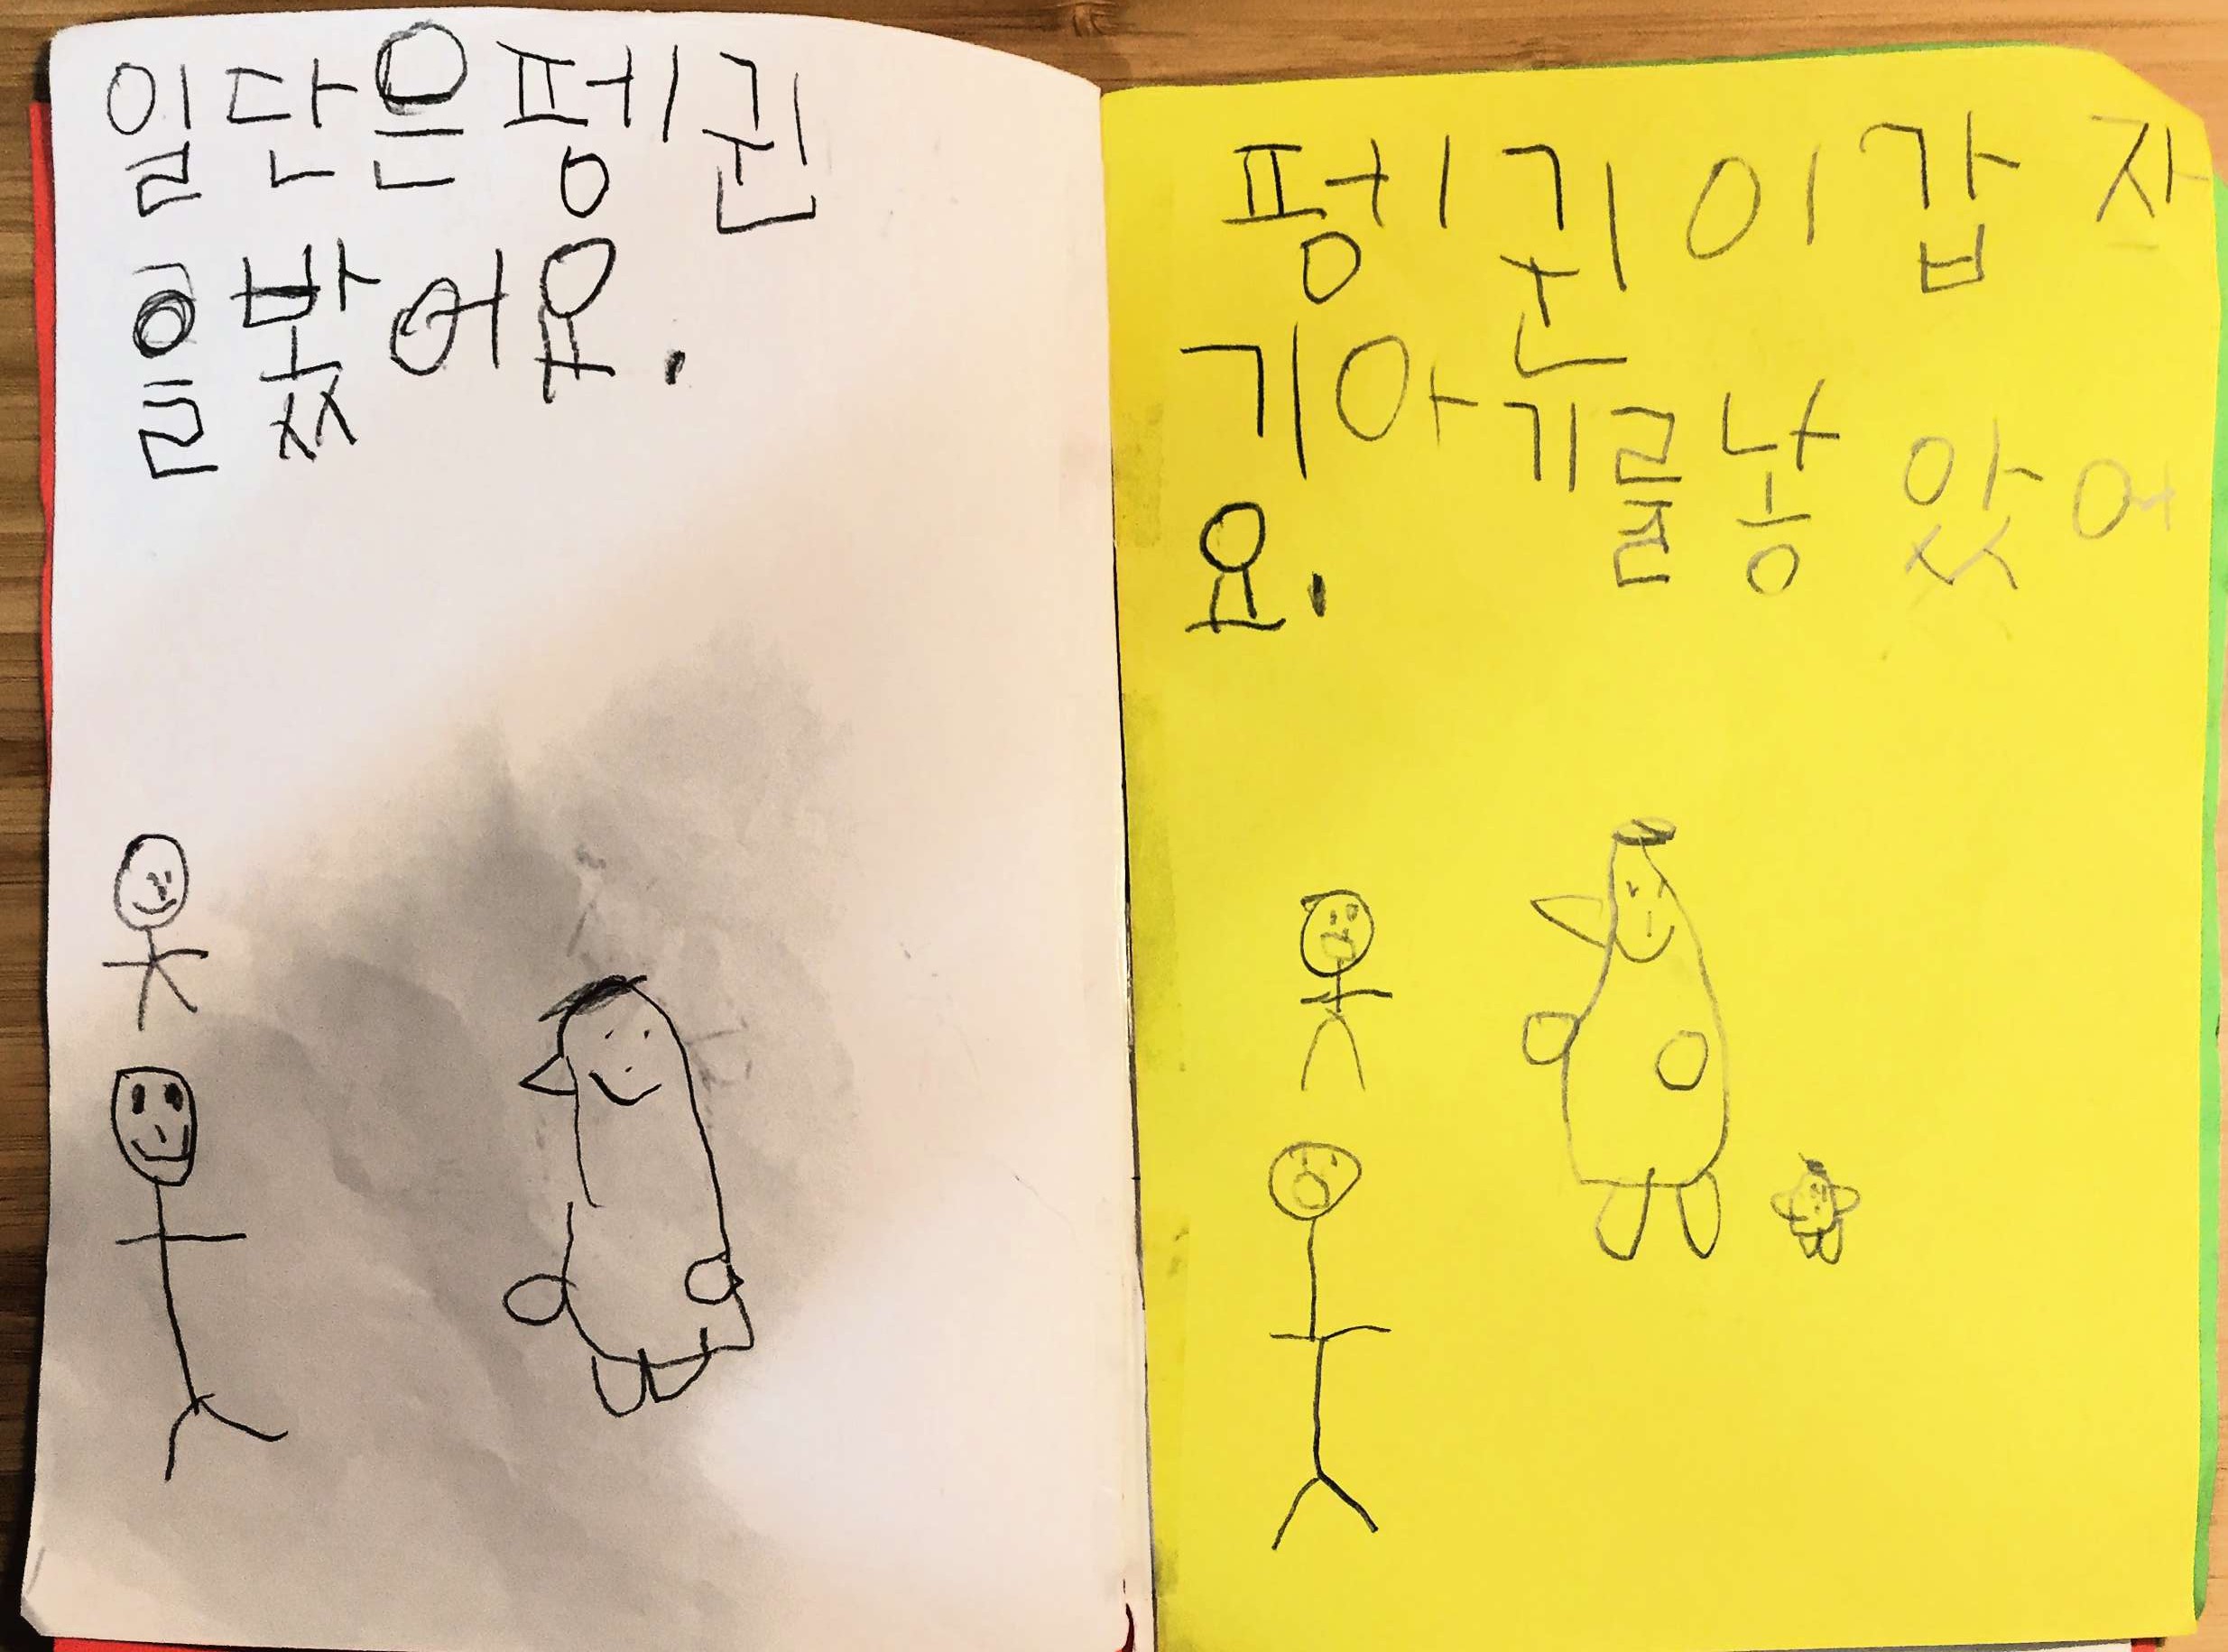 일단은펭귄
을봤어요.
펭귄이갑자
기아기를낳았어
요.